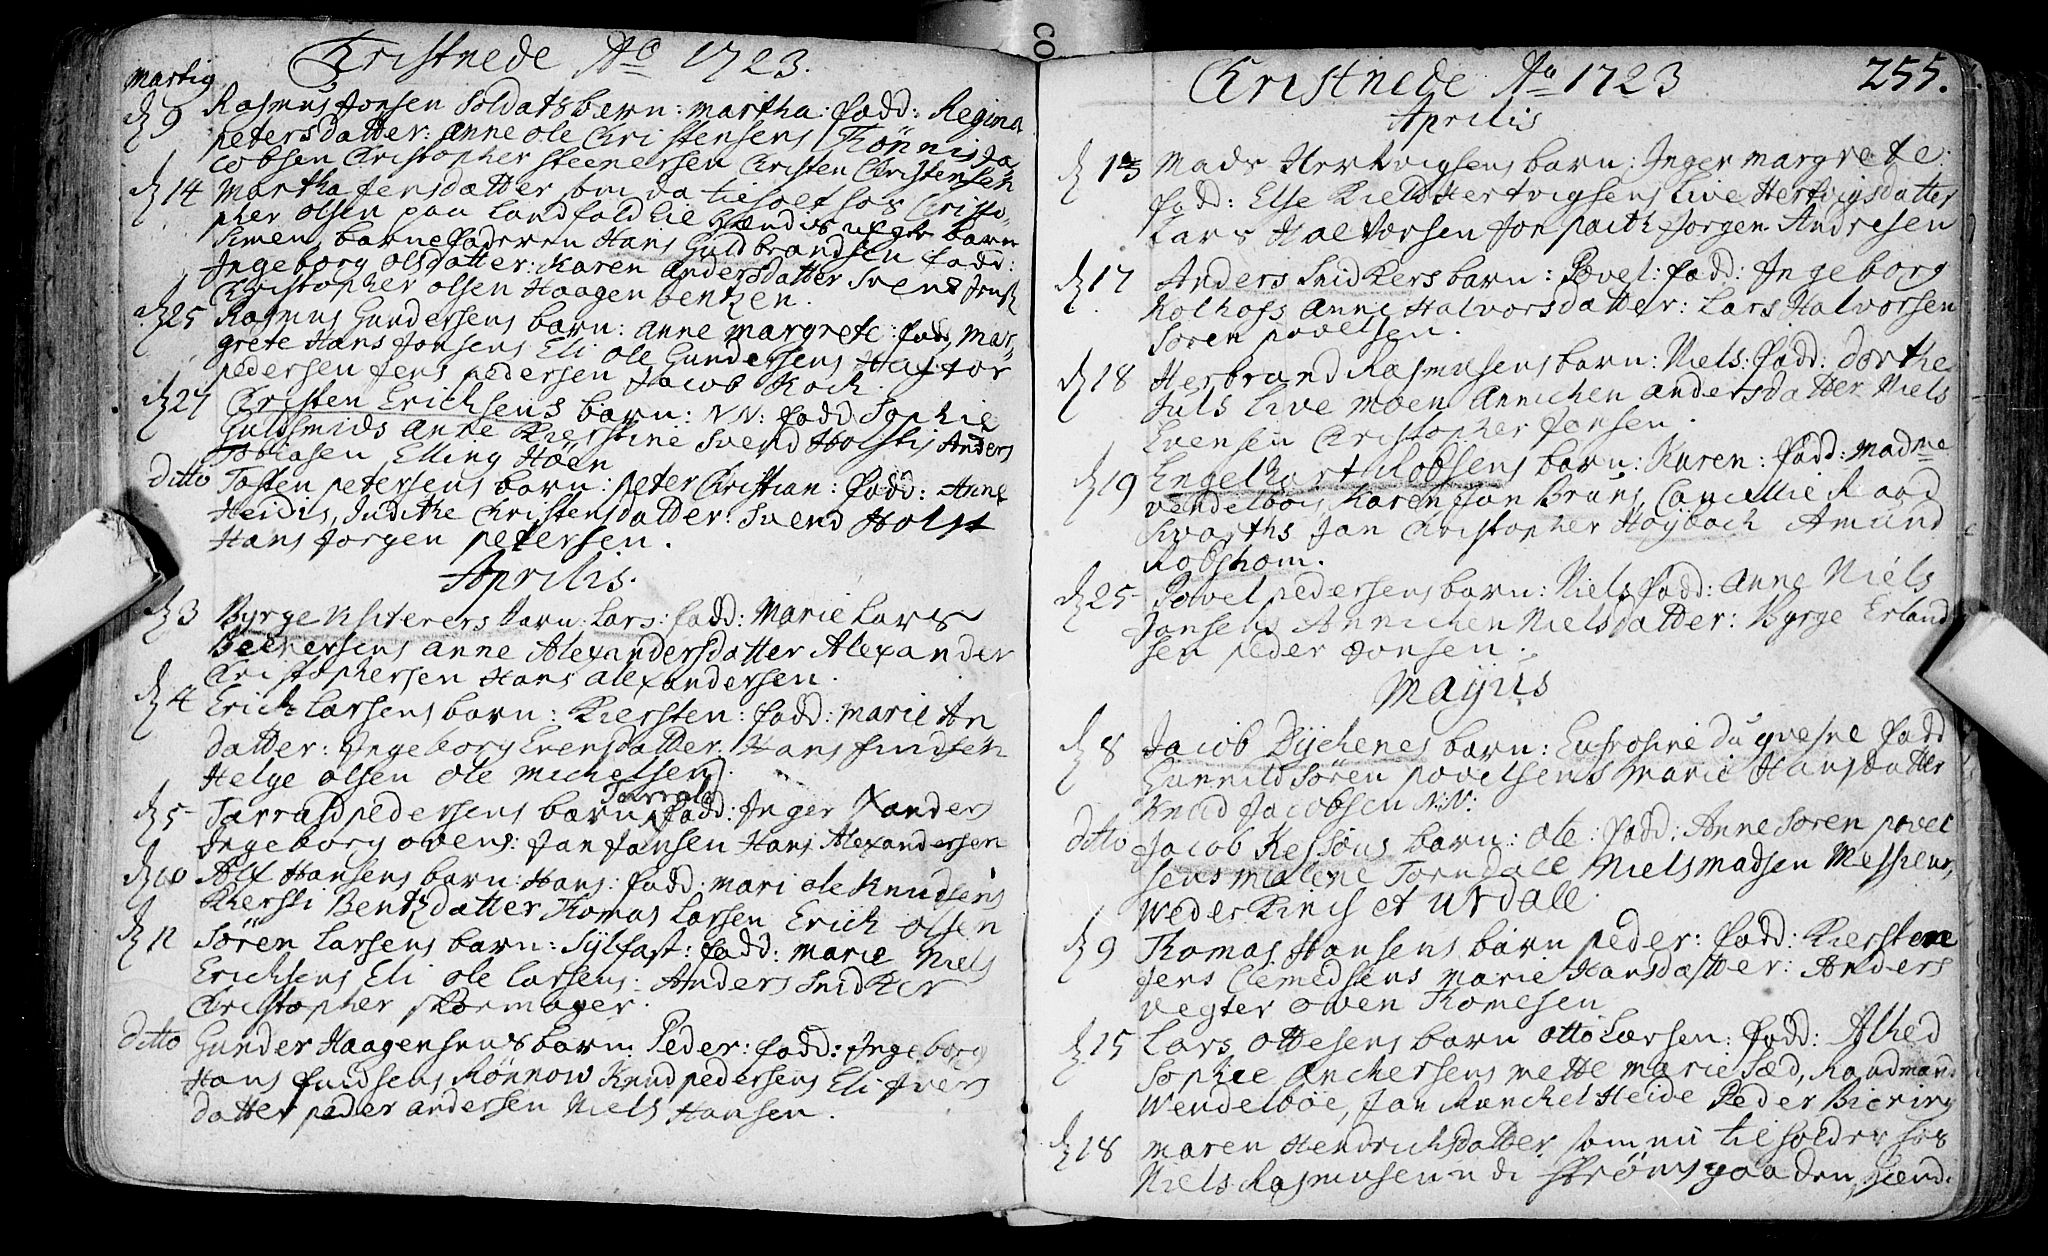 Christnede Ao 1723.
Martij
d 9 Rasmus Jonsen Soldats barn: Martha: fadd: Regina
petersdatter: Anne ole Christensens Thönnis Ja
cobsen Christopher Steenersen Christen Christensen
d 14 Martha Jensdatter som da tilholt hos Christo-
pher olsen paa Landfald lie hendis uegte barn
Simen, barnefaderen Hans Guldbrandsen fadd:
Ingeborg olsdatter: Karen Andersdatter Svend Jens
Christopher olsen Haagen bentzen.
d 25 Rasmus Gundersens barn: Anne Margrete: fadd Mar-
grete Hans Jonsens Eli ole Gundersens Haftor
pedersen Jens pedersen Jacob Koch.
d 27 Christen Erichsens barn: NN: fadd: Sophie
Guldsmids Anne Kierstine Svend Holstis Anders
Tobiasen Elling Hoen
ditto Tosten petersens barn: peter Christian: fadd: Anne
Heidis, Judithe Christensdatter: Svend Holst
Hans Jørgen petersen.
Aprilis.
d 3 Byrge Visiterers barn: Lars: fadd: Marie Lars
Beerersens Anne Alexandersdatter Alexander
Christophersen Hans Alexandersen.
d 4 Erich Larsens barn: Kiersten: fadd: Marie An
datter: Ingeborg Evensdatter: Hans Knudsen
Helge olsen ole Michelsen.
Tarrald
d 5 Tarrald pedersens barn fadd: Inger Xanders
Ingeborg ovens: Jan Jansen Hans Alexandersen
d 10 Alf Hansens barn: Hans: fadd: Mari ole Knudsens
Khersti Bentzdatter Thomas Larsen Erich olsen
d 11 Sören Larsens barn: Sylfast: fadd: Marie Niels
Erichsens Eli ole Larsens: Anders Snidker
Christopher skoemager.
ditto Gunder Haagensens barn: Peder: fadd: Ingeborg
Hans Knudsens Rönnow Knud pedersens Eli Ivers
datter peder andersen Niels Hansen.
Christnede Ao 1723 255.
Aprilis
d 13 Mads Hertvigsens barn: Inger Margrete:
fadd: Else Kield Hertvigsens Live Hertvigsdatter
Lars Halvorsen Jon paith Jørgen Andresen
d 17 Anders Snidkers barn: Povel: fadd: Ingeborg
Kolhofs Anne Halvorsdatter: Lars Halvorsen
Soren povelsen.
d 18 Herbrand Rasmusens barn: Niels: fadd: Dorthe
Juls Live Moen Annichen Andersdatter Niels
Evensen Christopher Jonsen.
d 19 Engelhart Robsens barn: Karen: fadd: Madme
Vendelbois Karen Jan Bruns, Cancellie Raad
Svarths Jan Christopher Höybach Amund
Robshom.
d 25 Povel pedersens barn: Niels fadd: Anne Niels
Jansens Annichen Nielsdatter: Byrge Erland
sen peder Jonsen.
Mayus
d 8 Jacob Dychenes barn: Eufrosine du qvesne fadd
Gunnild Sören povelsens Marie Hansdatter
Knud Jacobsen N:N:
ditto Jacob Kessøns barn: ole: fadd: Anne Soren povel
sens Malene Torndall Niels Madsen Messieurs,
Wederkinch et Urdall.
d 9 Thomas Hansens barn peder: fadd: Kierstene
Jens Clemedsens Marie Hansdatter: Anders
Vegter oven Thomesen
d 15 Lars ottesens barn otto Larsen: fadd: Alhed
Sophie Anchersens Mette Marie Sæd, Raadmand
Wendelboe, Jan Runchel Heide Peder Biering
d 18 Maren Hendrichsdatter som nu tilholder hos
Niels Rasmusen udi Strömsgaaden, hend.